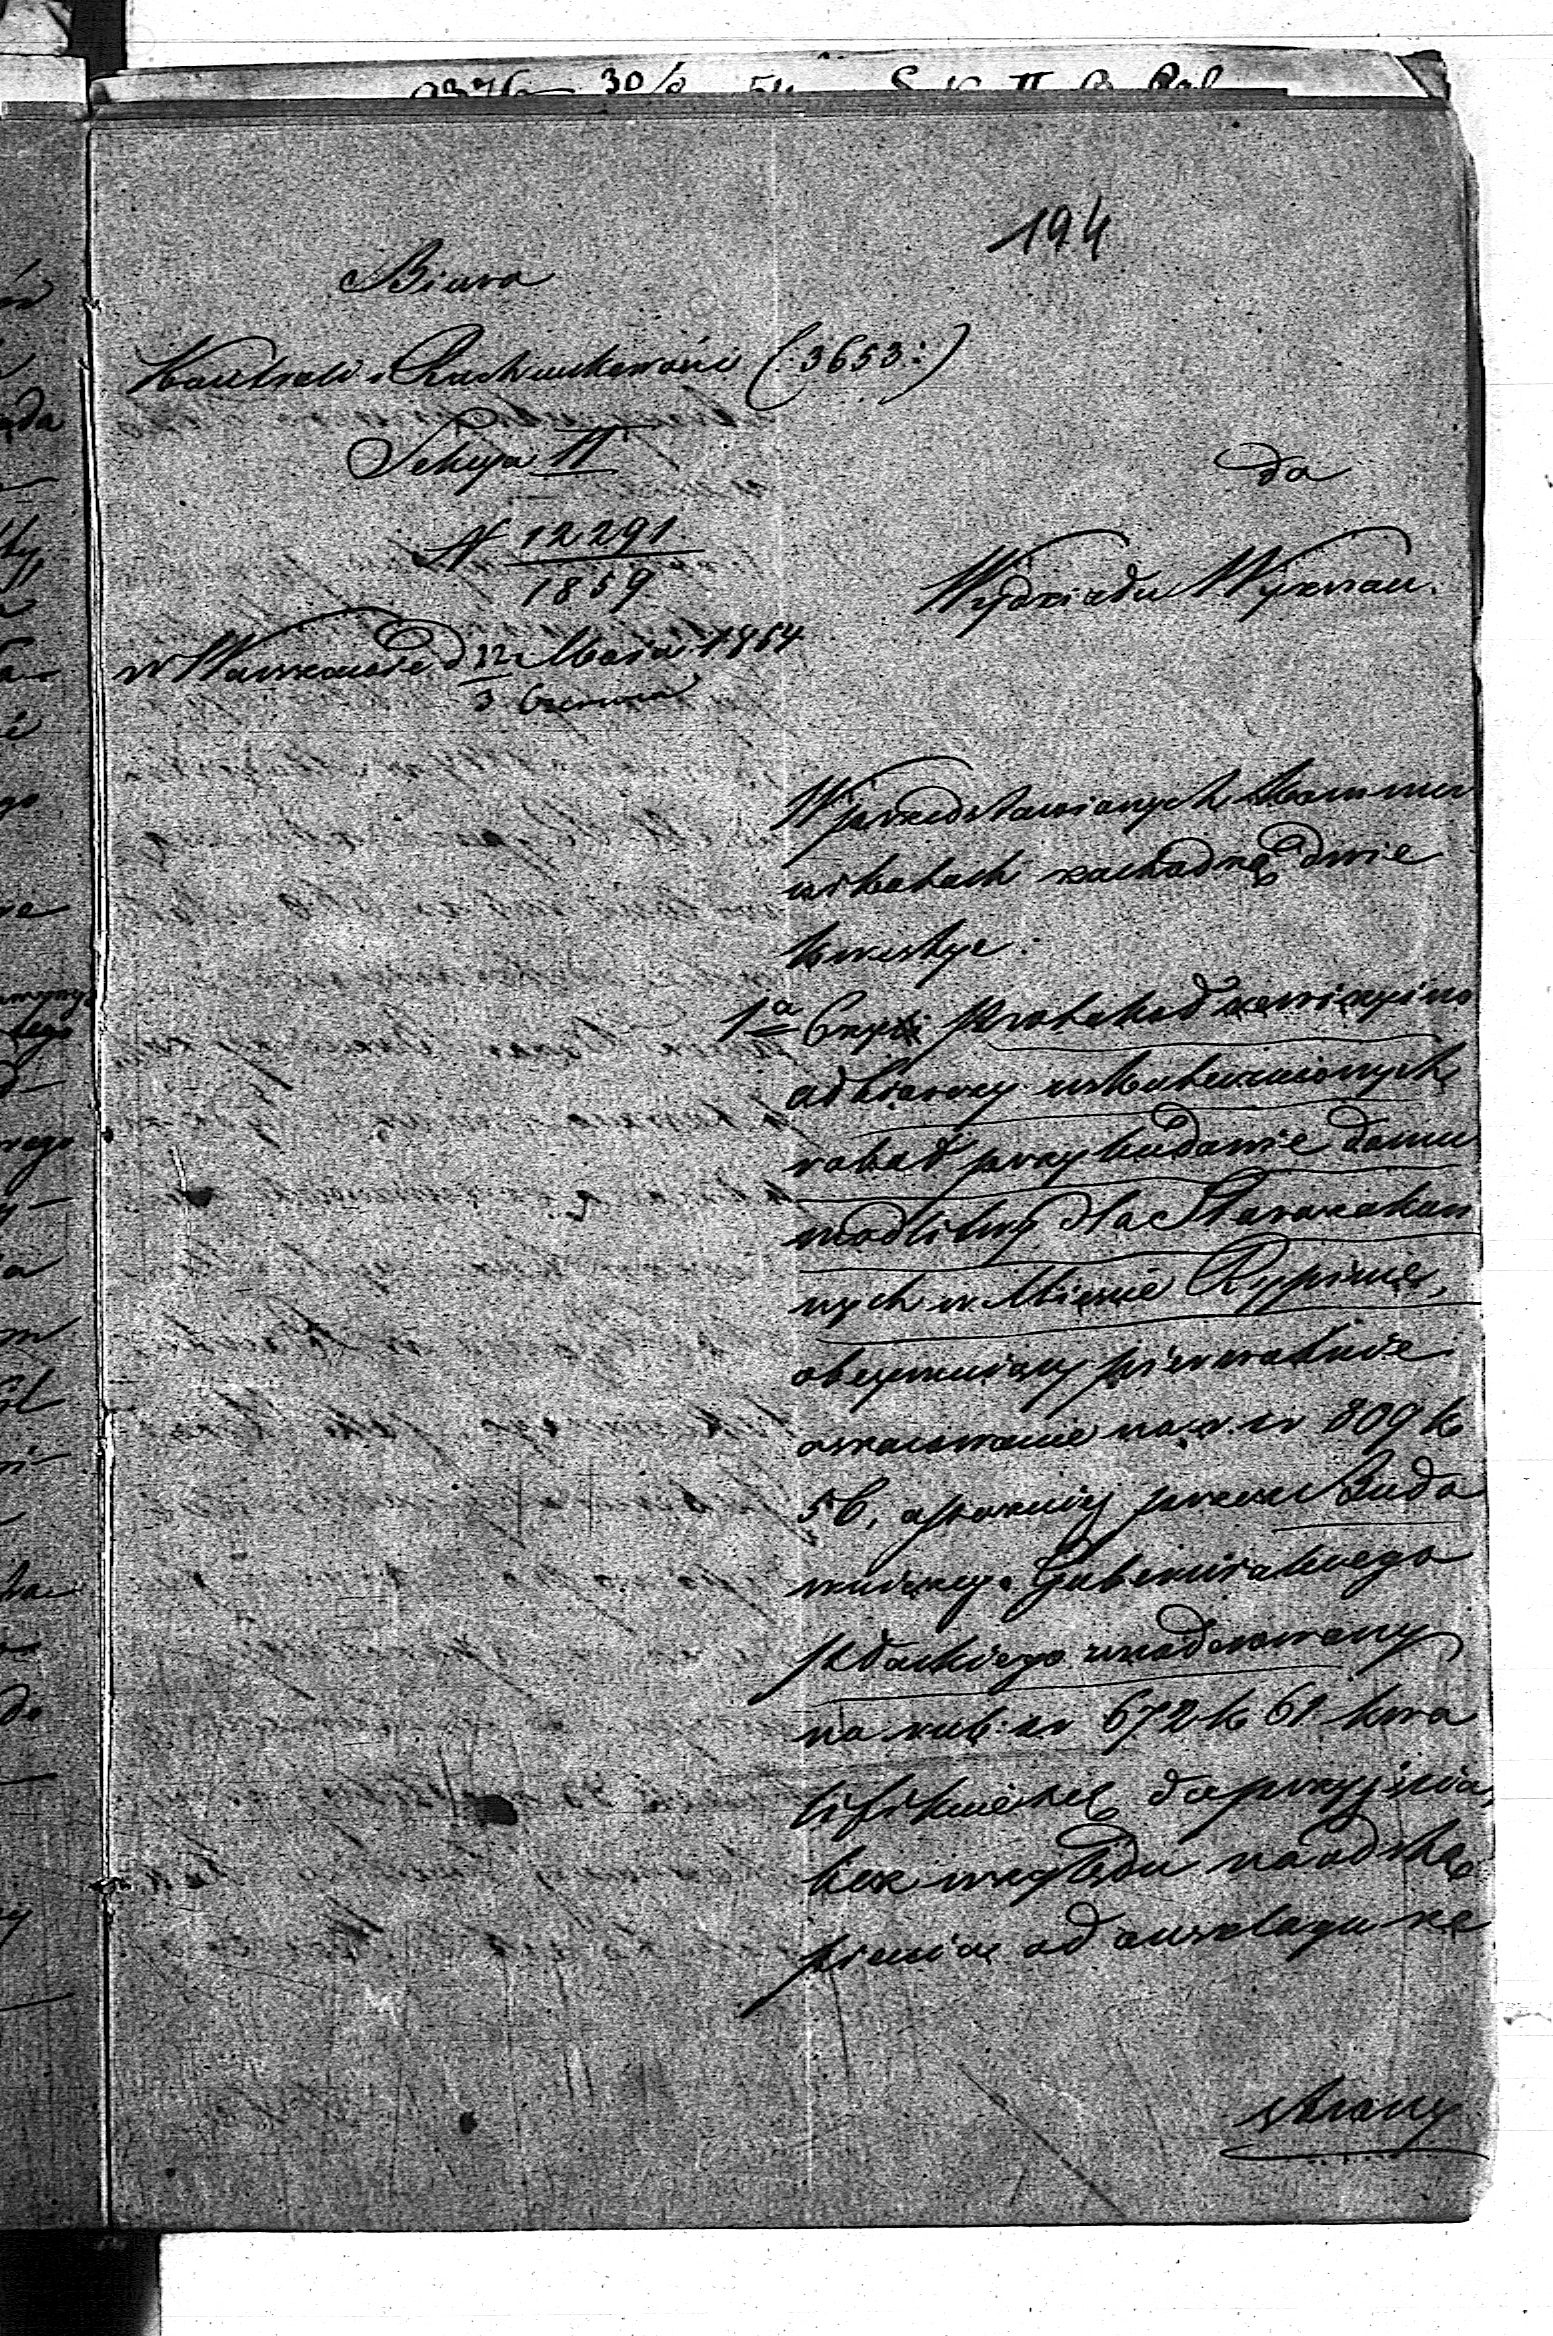 194
Biuro
Kontroli i Rachunkowości (:3653:)
Sekcya II
N 12291
1859
w Warszawie d 22 Maja 1854
3 Czerwca
do
Wydziału Wyznań.
W przedstawionych Kommu
nikatach zachodzą dwie
kwestye:
1a Czyli protokoł rewizyino
odbiorczy uskutecznionych
robot przy budowie domu
modlitwy dla Starozakon
nych w Mieście Rypinie,
obeymuiący pierwotnie
oszacowanie na r. sr 809 k
56, a poźniey przez Budo
wniczego Gubernialnego
Płockiego zredukowany
na rub: sr 672 k 61 kwa
lifikuie się do przyięcia,
bez względu na odstą
pienie od anszlagu ze
strony